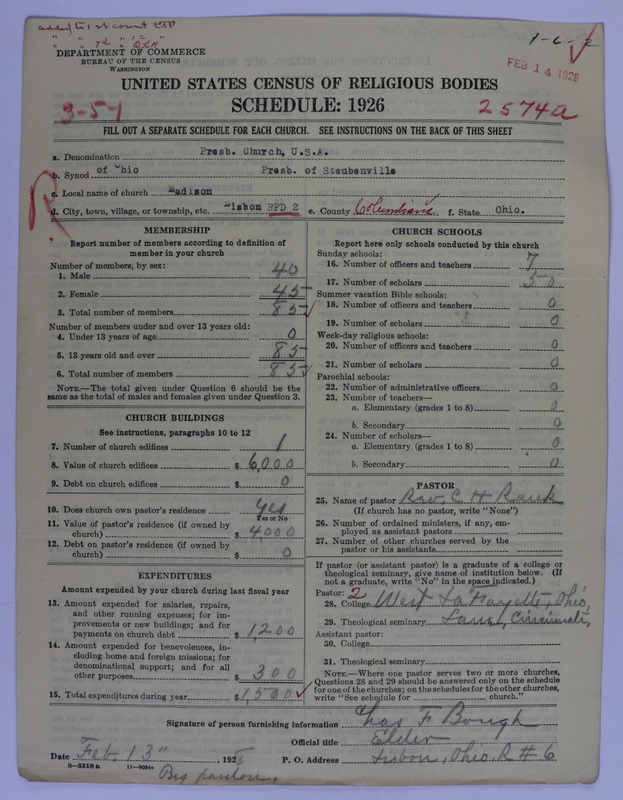 added to 1st count
1-6-2
DEPARTMENT OF COMMERCE
BUREAU OF THE CENSUS
WASHINGTON
FEB 14 1928
UNITED STATES CENSUS OF RELIGIOUS BODIES
SCHEDULE: 1926
3-5-1
2574a
FILL OUT A SEPARATE SCHEDULE FOR EACH CHURCH. SEE INSTRUCTIONS ON THE BACK OF THIS SHEET
a. Denomination Presb. Church, U.S.A.
b. Synod of Ohio Presb. of Steubenville
c. Local name of church Madison
d. City, town, village, or township, etc. Lisbon RFD 2 e. County Columbiana f. State Ohio.
MEMBERSHIP
Report number of members according to definition of member in your church
Number of members, by sex:
1. Male 40
2. Female 45
3. Total number of members 85
Number of members under and over 13 years old:
4. Under 13 years of age 0
5. 13 years old and over 85
6. Total number of members 85
NOTE.—The total given under Question 6 should be the same as the total of males and females given under Question 3.
CHURCH BUILDINGS
See instructions, paragraphs 10 to 12
7. Number of church edifices 1
8. Value of church edifices $ 6,000
9. Debt on church edifices $ 0
10. Does church own pastor's residence yes
Yes or No
11. Value of pastor's residence (if owned by church) $ 4000
12. Debt on pastor's residence (if owned by church) $ 0
EXPENDITURES
Amount expended by your church during last fiscal year
13. Amount expended for salaries, repairs, and other running expenses; for improvements or new buildings; and for payments on church debt $ 1,200
14. Amount expended for benevolences, including home and foreign missions; for denominational support; and for all other purposes $ 300
15. Total expenditures during year $ 1,500
CHURCH SCHOOLS
Report here only schools conducted by this church
Sunday schools:
16. Number of officers and teachers 7
17. Number of scholars 50
Summer vacation Bible schools:
18. Number of officers and teachers 0
19. Number of scholars 0
Week-day religious schools:
20. Number of officers and teachers 0
21. Number of scholars 0
Parochial schools:
22. Number of administrative officers 0
23. Number of teachers—
a. Elementary (grades 1 to 8) 0
b. Secondary 0
24. Number of scholars—
a. Elementary (grades 1 to 8) 0
b. Secondary 0
PASTOR
25. Name of pastor Rev. C H Rauk
(If church has no pastor, write "None")
26. Number of ordained ministers, if any, employed as assistant pastors
27. Number of other churches served by the pastor or his assistants
If pastor (or assistant pastor) is a graduate of a college or theological seminary, give name of institution below. (If not a graduate, write "No" in the space indicated.)
Pastor: 2
28. College West La Fayette, Ohio,
29. Theological seminary Lane, Cincinnati,
Assistant pastor:
30. College
31. Theological seminary
NOTE.—Where one pastor serves two or more churches, Questions 28 and 29 should be answered only on the schedule for one of the churches; on the schedules for the other churches, write "See schedule for church."
Signature of person furnishing information Chas F Bough
Official title Elder
Date Feb. 13", 1928 P. O. Address Lisbon, Ohio, R # 6
8—5518a 11—9054c